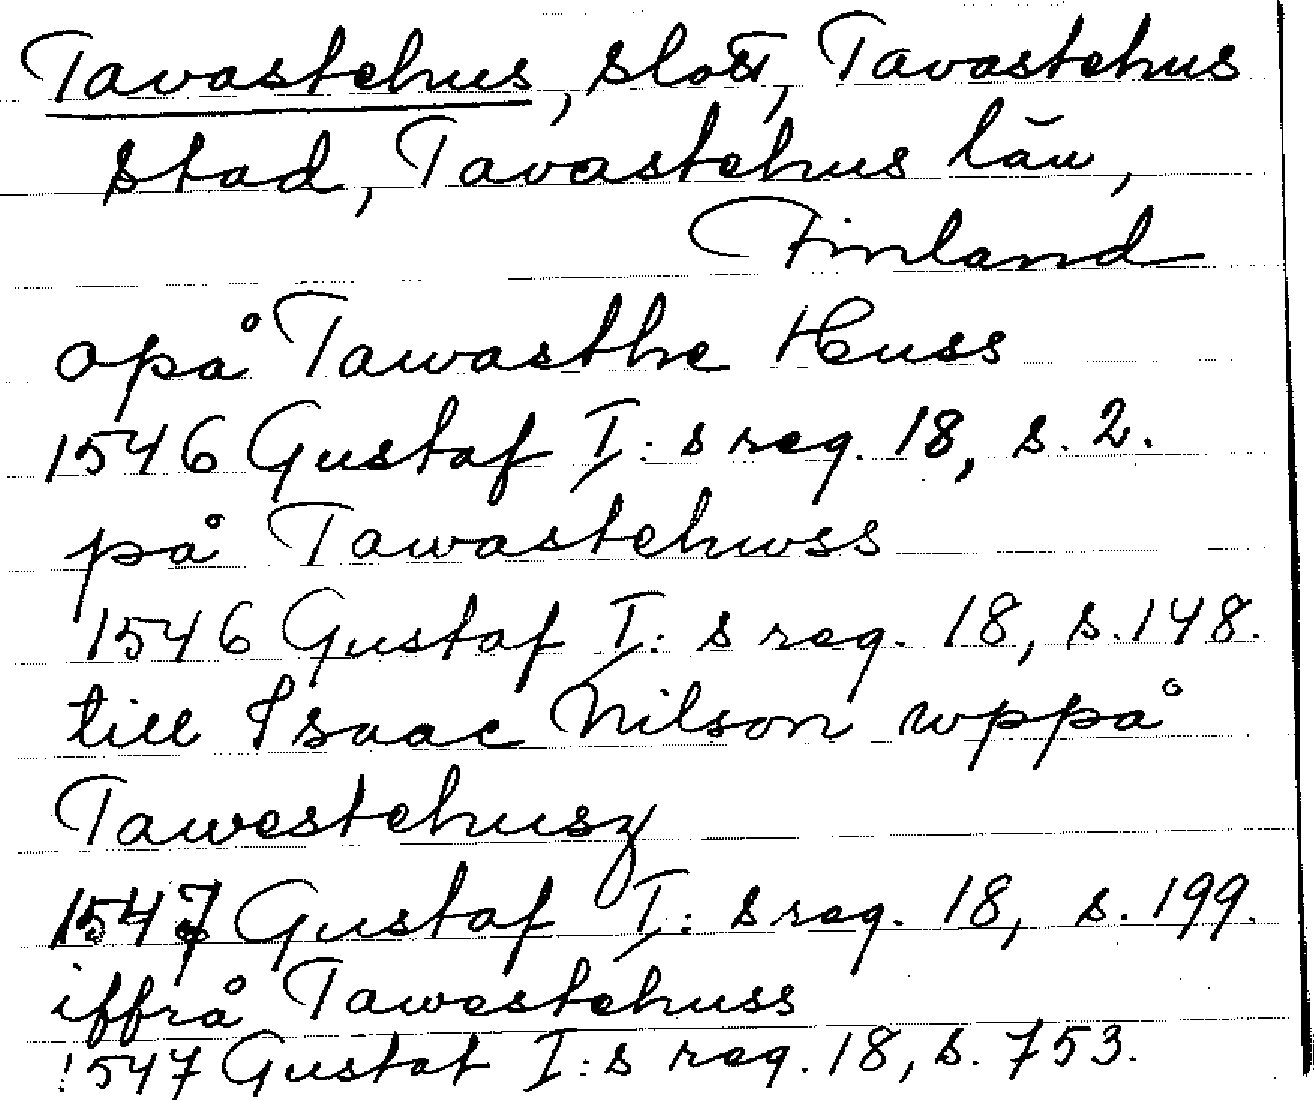 Tavastehus, slott, Tavastehus
stad, Tavastehus län,
Finland
opå Tawasthe Huss
1546 Gustaf I:s reg. 18, s. 2.
på Tawastehwss
1546 Gustaf I:s reg. 18, s. 148.
till Isaac Nilson wppå
Tawestehusz
1547 Gustaf I:s reg. 18, s. 199.
iffrå Tawestehuss
1547 Gustaf I:s reg. 18, s. 753.